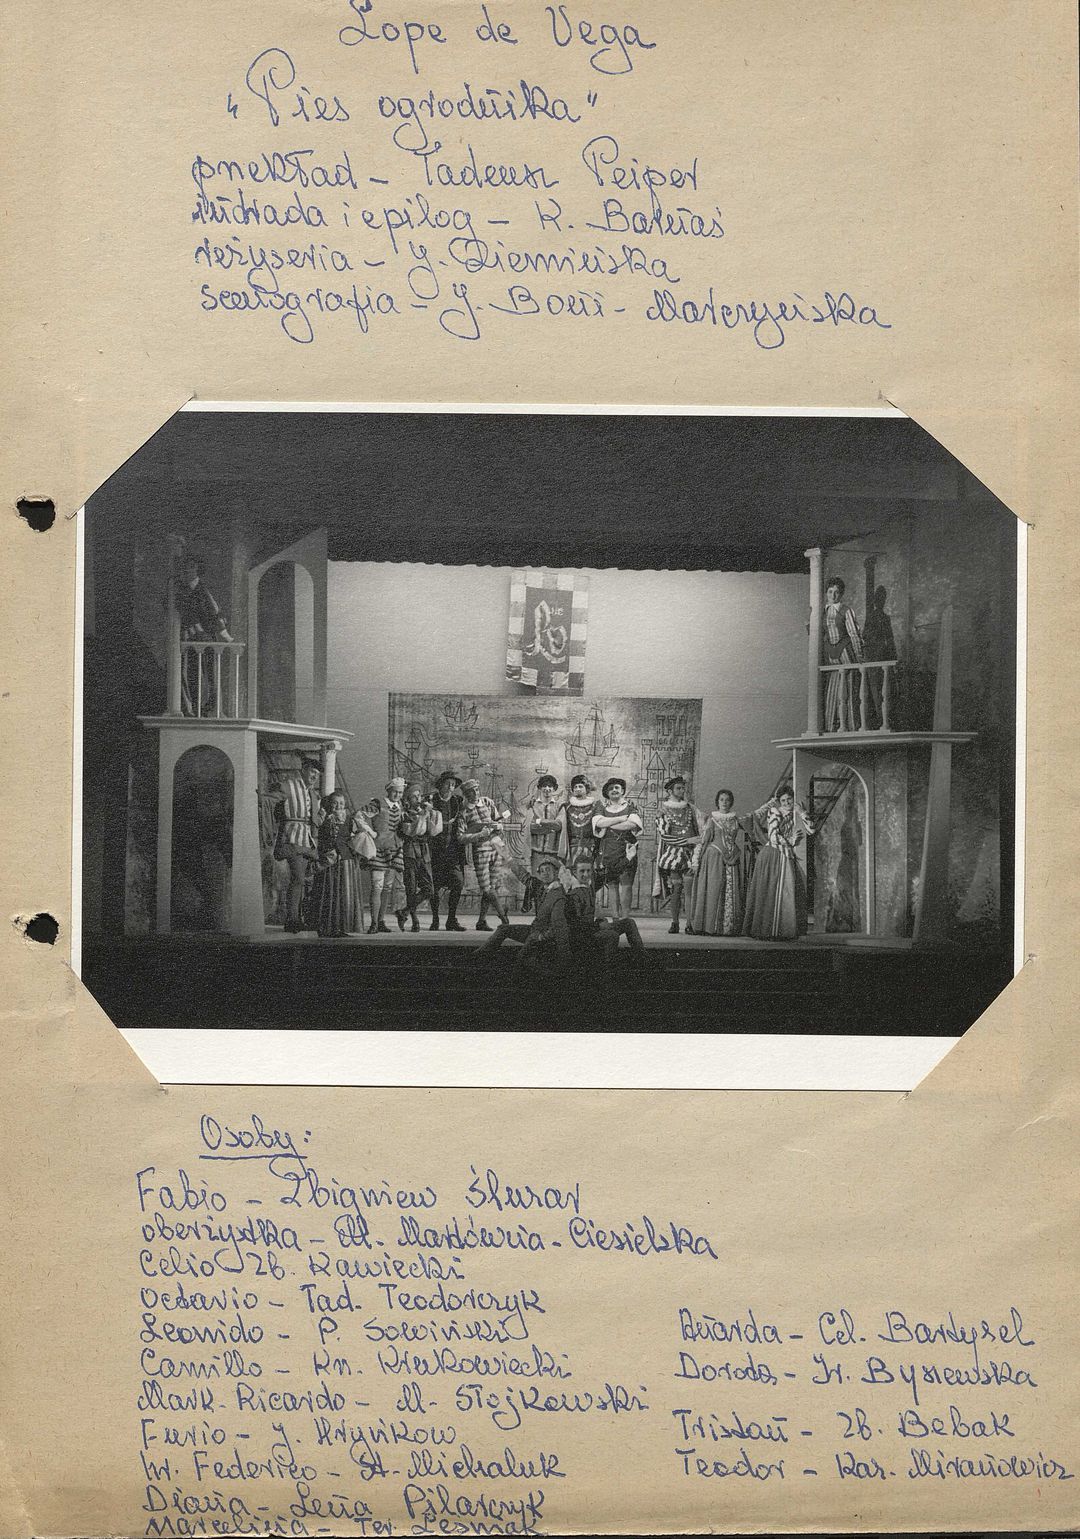 Lope de Vega
„Pies ogrodnika"
przekład - Tadeusz Peiper
intrada i epilog - K. Barnaś
reżyseria - J. Ziemińska
scenografia - J. Boni-Marczyńska
Osoby:
Fabio - Zbigniew Ślusar
oberżystka - M. Markówna-Ciesielska
Celio Zb. Kawiecki
Octavio - Tad. Teodorczyk
Leonido - P. Sowiński
Camillo - Kn. Krukowiecki
Mark. Ricardo - M. Stojkowski
Furio - J. Hryńkow
hr. Federico - St. Michaluk
Diana - Lena Pilarczyk
Marcelina - Ter. Leśniak
Anarda - Cel. Bartysel
Dorota - Ir. Byszewska
Tristan - Zb. Bebak
Teodor - Kaz. Miranowicz